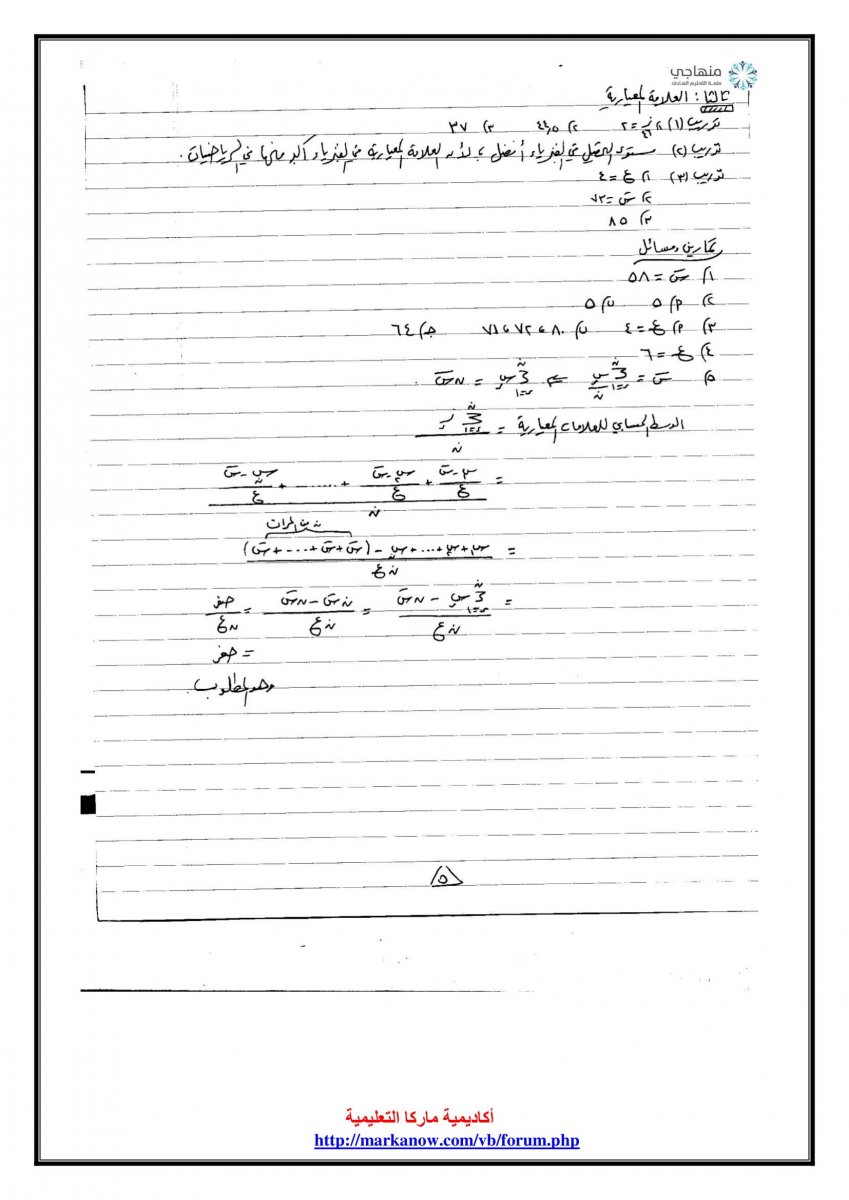 منهاجي
منصة التعليم الهادف
ثالثا: العلامة المعيارية
تدريب (١) ١) ز٤٦ = ٢ ٢) ٤٤,٥ ٣) ٣٧
تدريب (٢) مستوى التحصيل في الفيزياء أفضل، لأن العلامة المعيارية في الفيزياء أكبر منها في الرياضيات.
تدريب (٣) ١) ع = ٤
٢) س̄ = ٧٣
٣) ٨٥
تمارين ومسائل
١) س̄ = ٥٨
٢) ٥ ب) ٥
٣) ع = ٤ ب) ٨٠، ٧٢، ٧١ جـ) ٦٤
٤) ع = ٦
٥) س̄ = (Σ س ر) / ن ⇐ Σ س ر = ن س̄ .
الوسط الحسابي للعلامات المعيارية = (Σ ز ر) / ن
= ((س١ - س̄)/ع + (س٢ - س̄)/ع + ...... + (س ن - س̄)/ع) / ن
ن من المرات
= (س١ + س٢ + ... + س ن - (س̄ + س̄ + ... + س̄)) / ن ع
= (Σ س ر - ن س̄) / ن ع = (ن س̄ - ن س̄) / ن ع = صفر / ن ع
= صفر
وهو المطلوب.
٥
أكاديمية ماركا التعليمية
http://markanow.com/vb/forum.php